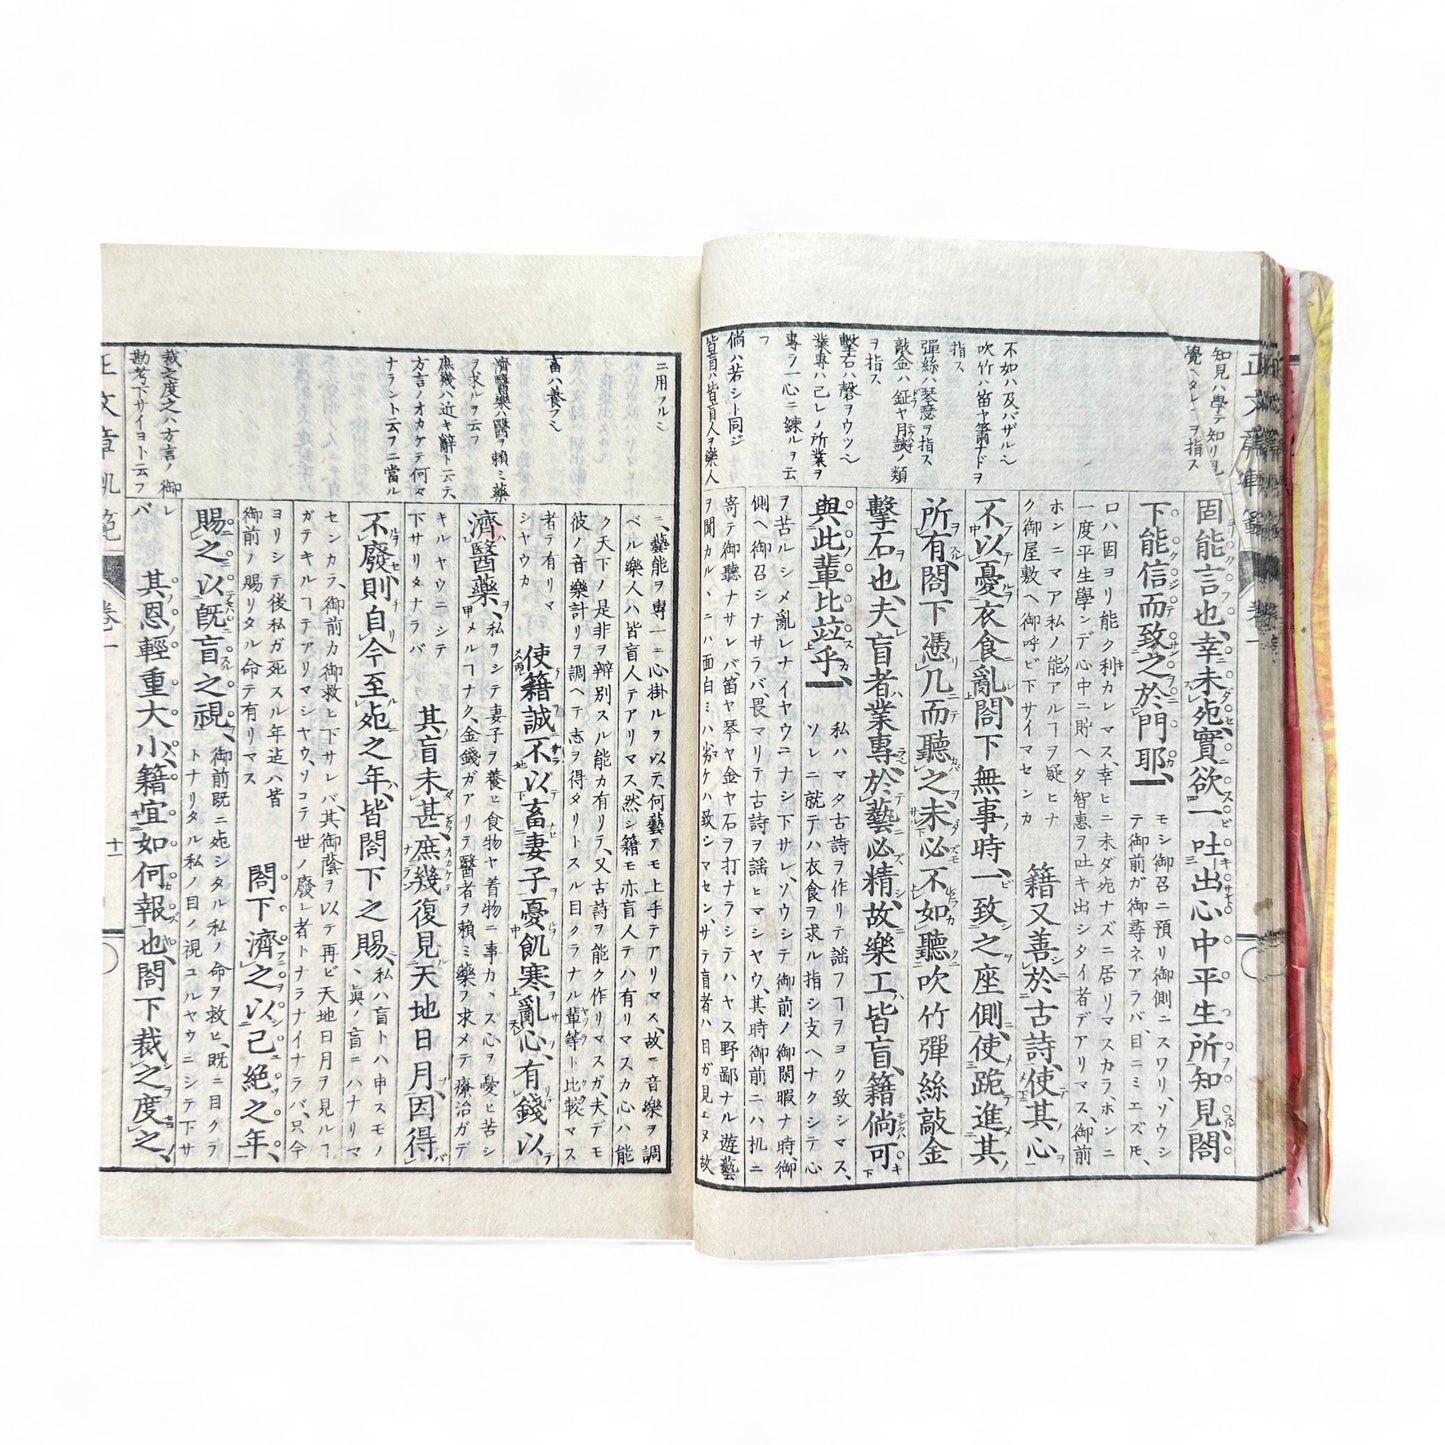 知見ハ學テ知リ見
覺ヘタルヿヲ指ス
不如ハ及バザルㇸ
吹竹ハ笛ヤ簫ナドヲ
指ス
彈絲ハ琴瑟ヲ指ス
敲金ハ鉦ヤ月鼓ノ類
ヲ指ス
擊石ハ磬ヲウツㇸ
業專ハ己レノ所業ヲ
專ラ一心ニ練ルヲ云
フ
倘ハ若シト同ジ
皆盲ハ皆盲人ヲ樂人
固能言也、幸未死、實欲一吐出心中平生所知見、閤
下能信而致之於門耶、
モシ御召ニ預リ御側ニスワリ、ソウシ
テ御前ガ御尋ネアラバ、目ニミエズモ、
口ハ固ヨリ能ク利カレマス、幸ヒニ未ダ死ナズニ居リマスカラ、ホンニ
一度平生學ンデ心中ニ貯ヘタ智惠ヲ吐キ出シタイ者デアリマス、御前
ホンニマア私ノ能アルヿヲ疑ヒナ
ク御屋敷ヘ御呼ビ下サイマセンカ
籍又善於古詩、使其心
不以憂衣食亂、閤下無事時、一致之座側、使跪進其
所有、閤下憑几而聽之、未必不如聽吹竹彈絲敲金
擊石也、夫盲者業專、於藝必精、故樂工皆盲、籍倘可
與此輩比竝乎、
私ハマタ古詩ヲ作リテ謡フヿヲヨク致シマス、
ソレニ就テハ衣食ヲ求ル指シ支ヘナクシテ心
ヲ苦ルシメ亂レナイヤウニナシ下サレ、ソウシテ御前ノ御閑暇ナ時、御
側ヘ御召シナサラバ、畏マリテ古詩ヲ謡ヒマシヤウ、其時御前ニハ机ニ
寄テ御聽ナサレバ、笛ヤ琴ヤ金ヤ石ヲ打ナラシテハヤス野鄙ナル遊藝
ヲ聞カル、ニハ面白ミハ劣ケハ致シマセン、サテ盲者ハ目ガ見エヌ故
二用フルㇸ
畜ハ養フㇸ
濟醫藥ハ醫ヲ賴ミ藥
ヲ求ルヲ云フ
庶幾ハ近キ辭ト云テ、
方言ノオカケデ何々
ナラント云フニ當ル
裁之度之ハ方言ノ御レ
勘考下サイヨト云フ
バ
ニ、藝能ヲ專一ニ心掛ルヲ以テ、何藝デモ上手デアリマス、故ニ音樂ヲ調
ベル樂人ハ皆盲人デアリマス、然シ籍モ亦盲人デハ有リマスカ心ハ能
ク天下ノ是非ヲ辨別スル能カ有リテ、又古詩ヲ能ク作リマスガ、夫デモ
彼ノ音樂計リヲ調ヘテ志ヲ得タリトスル目クラナル輩等ト比較マス
者テ有リマ
シヤウカ
使籍誠不以畜妻子憂飢寒亂心、有錢以
濟醫藥、
私ヲシテ妻子ヲ養ヒ食物ヤ着物ニ事カヽズ心ヲ憂ヒ苦シ
メルヿナク、金錢ガアリテ醫者ヲ賴ミ藥ヲ求メテ療治ガデ
キルヤウニシテ
下サリタナラバ
其盲未甚、庶幾復見天地日月、因得
不廢、則自今至死之年、皆閤下之賜、
私ハ盲トハ申スモノ
、眞ノ盲ニハナリマ
センカラ、御前カ御救ヒ下サレバ、其御蔭ヲ以テ再ビ天地日月ヲ見ルヿ
ガデキルヿデアリマシヤウ、ソコデ世ノ廢レ者トナラナイナラバ、只今
ヨリシテ後私ガ死スル年迄ハ皆
御前ノ賜リタル命デ有リマス
閤下濟之以己絕之年、
賜之以旣盲之視、
御前既ニ死シタル私ノ命ヲ救ヒ、既ニ目クラ
トナリタル私ノ目ノ視ユルヤウニシテ下サ
其恩輕重大小、籍宜如何報也、閤下裁之度之、
正文章軌範
卷一
十一